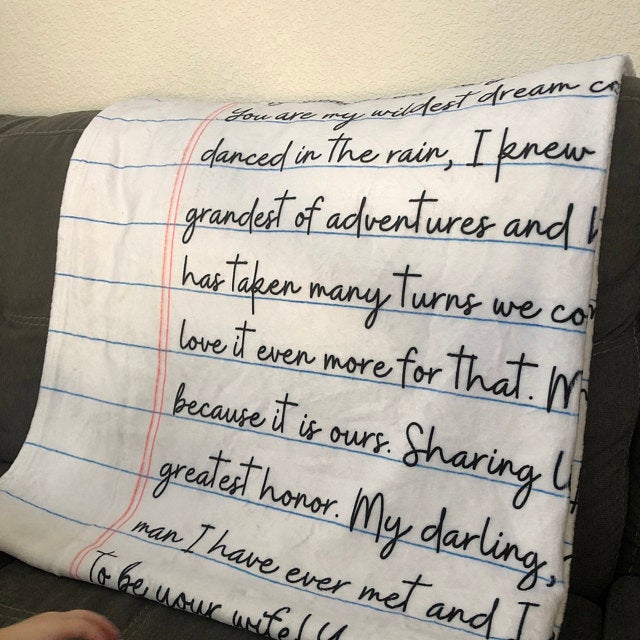 You are my wildest dream
danced in the rain, I knew
grandest of adventures and
has taken many turns we
love it even more for that.
because it is ours. Sharing
greatest honor. My darling,
man I have ever met and I
To be your wife!